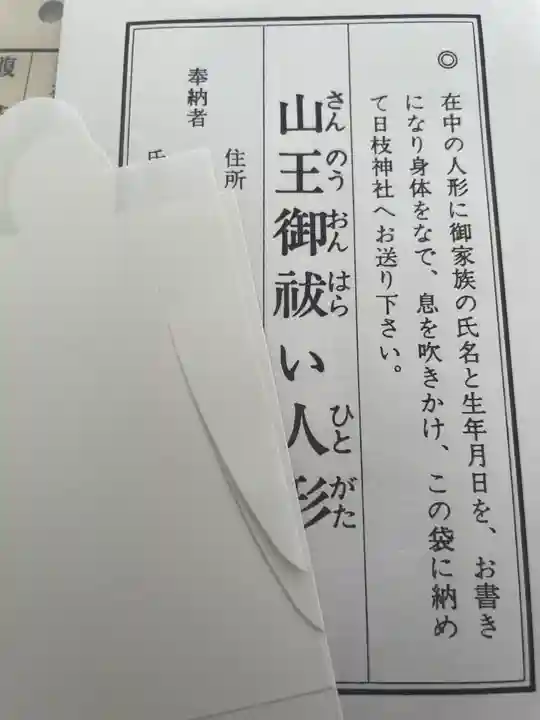 ◎
在中の人形に御家族の氏名と生年月日を、お書き
になり身体をなで、息を吹きかけ、この袋に納め
て日枝神社へお送り下さい。
さんのうおんはらひとがた
山王御祓い人形
住所
奉納者
氏
腹